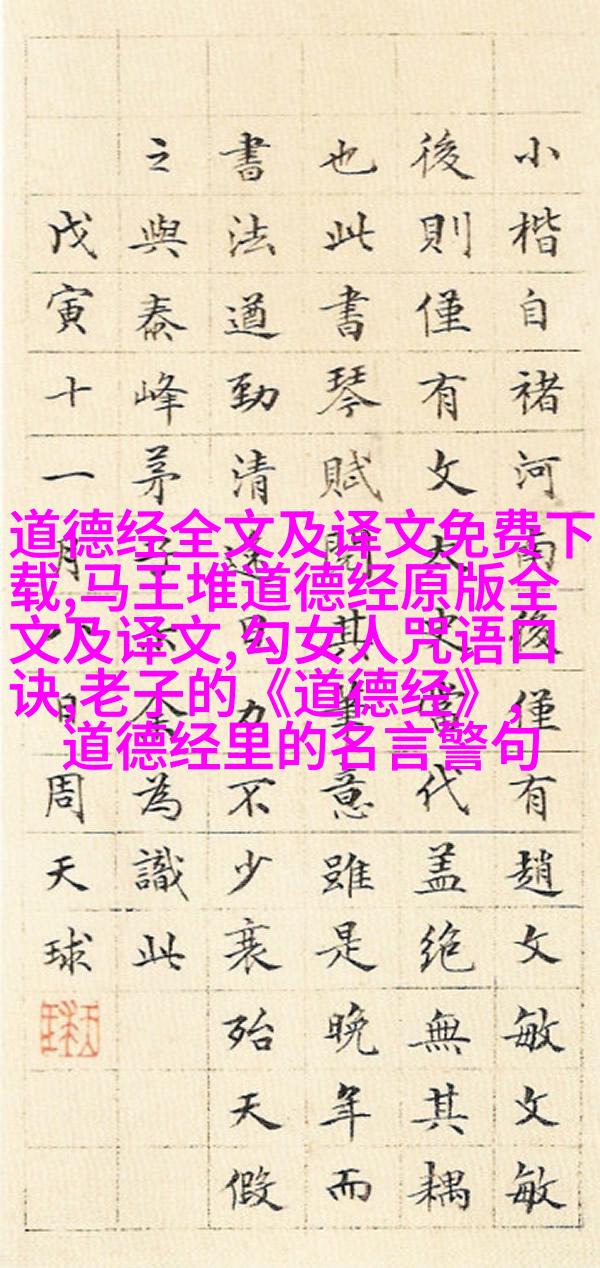 小楷自褚河南後僅有趙文敏文敏
後則僅有文太史當代盖絶無其耦
也此書琴賦其筆意雖是晚年而
書法遒勁清目力不少衰殆天假
之與泰峰茅子余為識此
戊寅十一月八日周天球
道德经全文及译文免费下
载,马王堆道德经原版全
文及译文,勾女人咒语口
诀,老子的《道德经》,
道德经里的名言警句